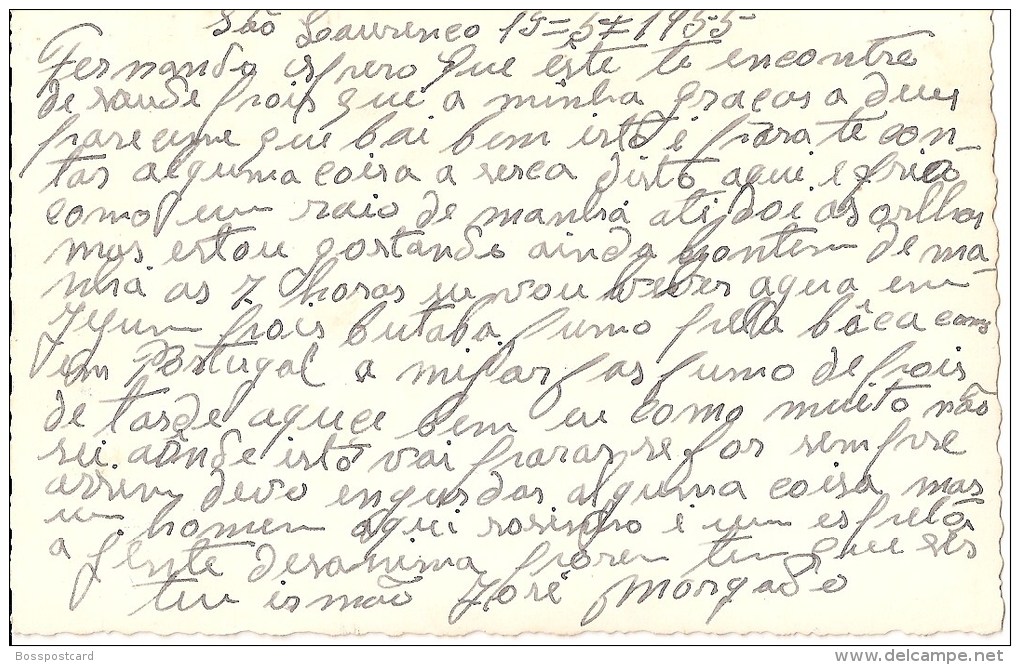 São Lourenço 15=5=1955
Fernando ispero que êste te encontre
de saude pois que a minha graças a deus
pareçeme que bai bem isto é para te con-
tar alguma coisa a serca disto aqui é frio
como um raio de manhã até doi as orlhas
mas estou gostando ainda hontem de ma-
nhã as 7 horas eu vou bever agua em
Jejum pois butaba fumo pela bôca como
em Portugal a mijar fas fumo depois
de tarde aquce bem eu como muito não
sei aônde isto vai parar se for sempre
assim devo engurdar alguma coisa mas
um homem aqui sosinho é um espeto
a gente desanima porem tem que ser
teu irmão José Morgado
Bosspostcard
www.delcampe.net